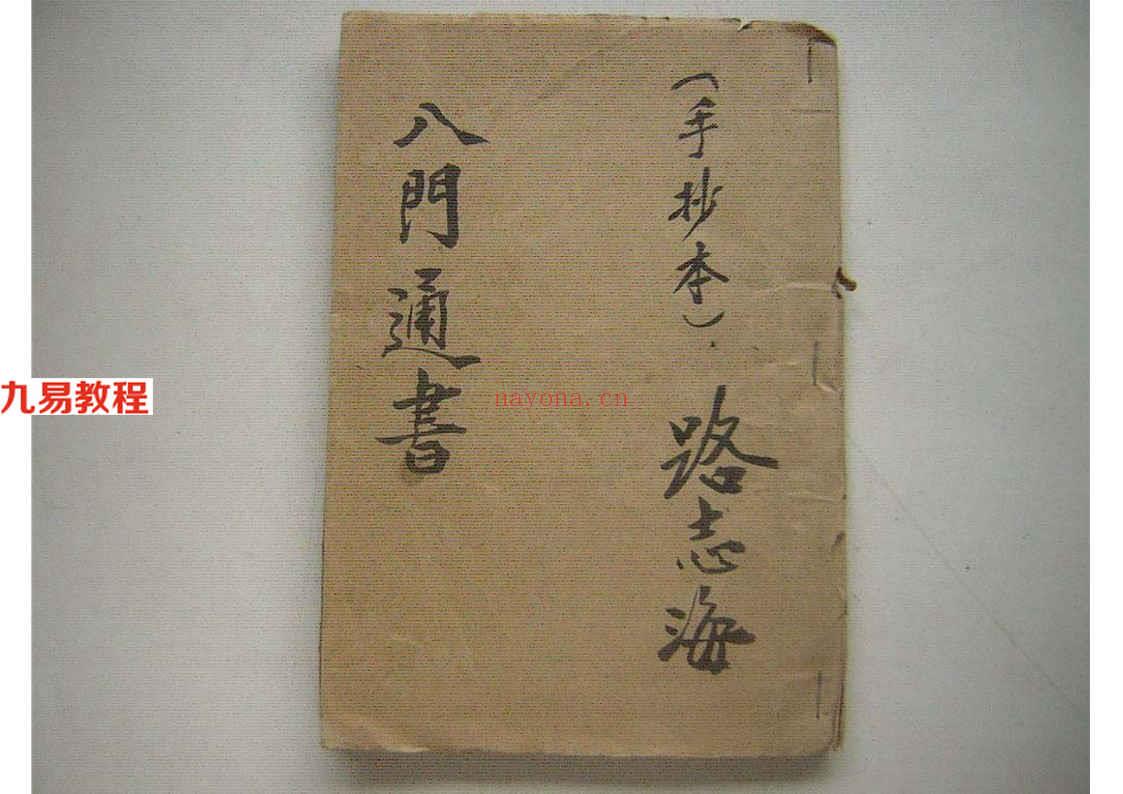 (手抄本)
路志海
八門通書
九易教程
nayona.cn